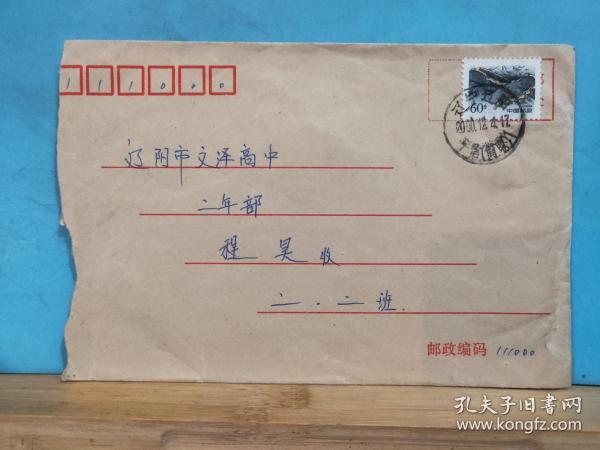 111000
60分
中国邮政
2000.12.4.17
辽阳市文泽高中
二年部
程昊收
二.二班.
邮政编码 111000
孔夫子旧书网
www.kongfz.com